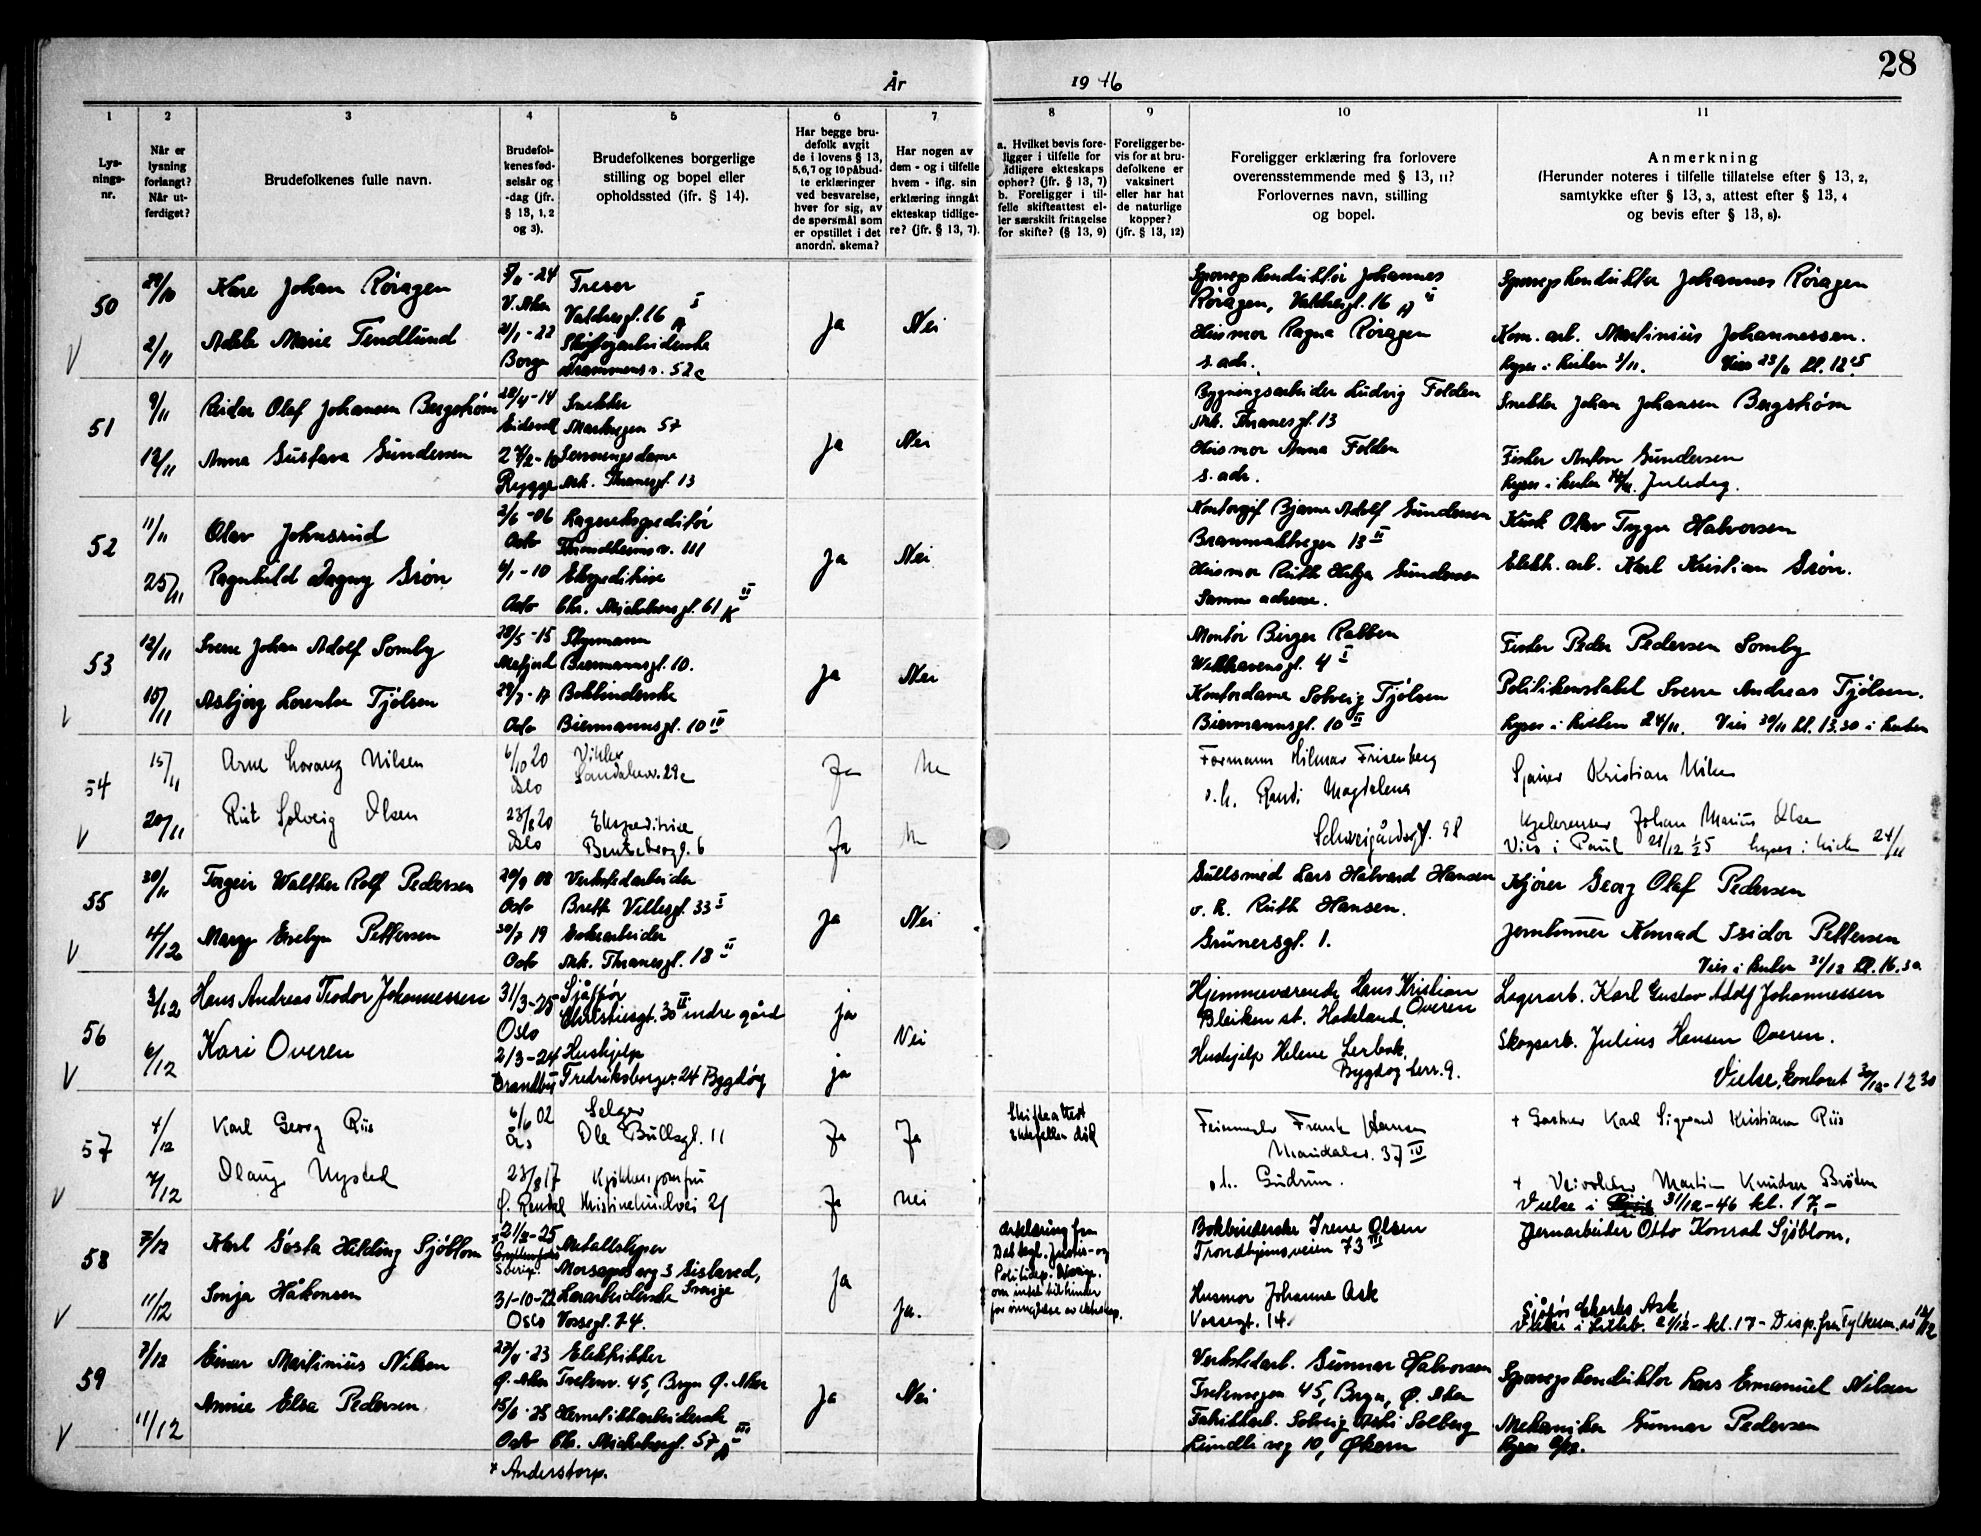 År 1946
28
1 2 3 4 5 6 7 8 9 10 11
Lys-
nings-
nr.
Når er
lysning
forlangt?
Når ut-
ferdiget?
Brudefolkenes fulle navn.
Brudefol-
kenes fød-
selsår og
-dag (jfr.
§ 13, 1, 2
og 3).
Brudefolkenes borgerlige
stilling og bopel eller
opholdssted (ifr. § 14).
Har begge bru-
defolk avgit
de i lovens § 13,
5,6,7 og 10 påbud-
te erklæringer
ved besvarelse,
hver for sig, av
de spørsmål som
er opstillet i det
anordn. skema?
Har nogen av
dem - og i tilfelle
hvem - iflg. sin
erklæring inngåt
ekteskap tidlige-
re? (jfr. § 13, 7).
a. Hvilket bevis fore-
ligger i tilfelle for
tidligere ekteskaps
ophør? (jfr. § 13, 7)
b. Foreligger i til-
felle skifteattest el-
ler særskilt fritagelse
for skifte? (§ 13, 9)
Foreligger be-
vis for at bru-
defolkene er
vaksinert
eller har hat
de naturlige
kopper?
(jfr. § 13, 12)
Foreligger erklæring fra forlovere
overensstemmende med § 13, 11?
Forlovernes navn, stilling
og bopel.
Anmerkning
(Herunder noteres i tilfelle tillatelse efter § 13, 2,
samtykke efter § 13, 3, attest efter § 13, 4
og bevis efter § 13, 8).
50
29/10
Kåre Johan Røragen
V. Aker
Freser
Valdresgt. 16
2/11
Adele Marie Tendlund
21/1 - 22
Borge
Drammensv. 52c
Ja
Nei
Sporvogskonduktør Johannes
Røragen, Valdresgt. 16
Husmor Ragna Røragen
s. adr.
Sporvogskonduktør Johannes Røragen
Kom. arb. Martinius Johannessen.
Lyses i kirken 3/11. Vies 23/11 kl. 12.15
51
9/11
Reidar Olaf Johansen Bergstrøm
28/4 - 14
Eidsvoll
Snekker
Markvegen 57
12/11
Anna Gustava Gundersen
Rygge
Serveringsdame
Mrk. Thranesgt. 13
Ja
Nei
Bygningsarbeider Ludvig Folden
Mrk. Thranesgt. 13
Husmor Anna Folden
s. adr.
Snekker Johan Johansen Bergstrøm
Fisker Anton Gundersen
Juledag.
52
11/11
Olav Johnsrud
3/6 - 06
Oslo
Lagerekspeditør
Throndheimsv. 111
25/11
Ragnhild Dagny Grøn
6/1 - 10
Oslo
Ekspeditrise
Chr. Michelsensgt. 61 K II
Ja
Nei
Kontorsjef Bjarne Adolf Gundersen
Brannvaktvegen 13 II
Husmor Ruth Helga Gundersen
Samme adresse.
Kusk Olav Trygve Halvorsen
Elektr. arb. Karl Kristian Grøn.
53
12/11
Sverre Johan Adolf Somby
28/5 - 15
Mefjord
Styrmann
Biermannsgt. 10.
15/11
Asbjørg Lorentse Tjølsen
29/7 - 17
Oslo
Bokbinderske
Biermannsgt. 10 IV
Ja
Nei
Montør Birger Rabben
Welhavensgt. 4 I
Kontordame Solveig Tjølsen
Biermannsgt. 10
Fisker Peder Pedersen Somby
Politikonstabel Sverre Andreas Tjølsen.
Lyses i kirken 24/11. Vies 30/11 kl. 13.30 i kirken
54
15/11
Arne Lorang Nilsen
6/10 20
Oslo
Sandakerv. 29c
20/11
Rut Solveig Olsen
23/8 20
Oslo
Ekspeditrise
Bentsebrogt. 6
Ja
Ja
Formann Hilmar Frisenberg
o.h. Randi Magdalena
Schweigårdsgt. 98
Kristian Nilsen
Johan Marius Olsen
Vies i Paul 21/12 lyses i kirken 24/11
55
20/11
Torgeir Walther Rolf Pedersen
20/9 08
Oslo
Verkstedarbeider
Brett Villesgt. 33 I
4/12
Margy Evelyn Pettersen
30/7 19
Oslo
Mrk. Thranesgt. 18 II
Ja
Nei
Gullsmed Lars Halvard Hansen
o. h. Ruth Hansen.
Grünersgt. 1.
Kjører Georg Olaf Pedersen
Jernbinner Konrad Isidor Pettersen
Vies i kirken 31/12 kl. 16.30
56
3/12
Hans Andreas Teodor Johannessen
31/3-25
Oslo
Sjåfør
Christiesgt. 30 III indre gård
6/12
Kari Overen
2/3-24
Brandbu
Hushjelp
Fredriksborgv. 24 Bygdøy
ja
ja
Nei
Hjemmeværende Hans Kristian
Overen
Bleiken st. Hadeland
Hushjelp Helene Lerbak,
Bygdøy terr. 9.
Lagerarb. Karl Gustav Adolf Johannessen
Skogsarb. Julius Hansen Overen.
Vielse, kontoret 30/12 - 12 30
57
4/12
Karl Georg Riis
6/6 02
Ås
Selger
Ole Bullsgt. 11
7/12
Olaug Nysted
23/8 17
Ø. Rendal
Kjøkkenjomfru
Kristinelundvei 21
Ja
Ja
Ja
Nei
Skifteattest
Ektefellen død
Frank Hansen
Maridalsv. 37 IV
Gudrun.
+ Gartner Karl Sigvard Kristian Riis
+ Veivokter Martin Knudsen Bråten
Vielse i 31/12-46 kl. 17.-
58
7/12
Karl Gösta Hilding Sjöblom
Sverige.
Metallsliper
Morsaposveg 3 Gislaved,
Sverige
11/12
Sonja Håkonsen
31-10-22
Oslo
Lærarbeiderske
Vossegt. 24.
Ja
Ja.
Erklæring fra
Det kgl. Justis- og
Politidep. Norge.
om intet til hinder
for inngåelse av ekteskap.
Bokbinderske Irene Olsen
Trondhjemsveien 73 III
Husmor Johanne Ask
Vossegt. 14
Jernarbeider Otto Konrad Sjöblom.
Sjåfør Charles Ask
Vielse i Lilleb. 21/12 - kl. 17 - Disp. fra Fylkesm. av 12/12
59
7/12
Einar Martinius Nilsen
Ø. Aker
Elektriker
Tvetenv. 45, Bryn Ø. Aker
11/12
Annie Elsa Pedersen
Oslo
Hermetikkarbeiderske
Chr. Michelsensgt. 57 A III
Ja
Nei
Verkstedarb. Gunnar Halvorsen
Tvetenvegen 45, Bryn, Ø. Aker
Fabrikkarb. Solveig Solberg
Lundliveg 10, Økern
Sporvogskonduktør Lars Emanuel Nilsen
Mekaniker Gunnar Pedersen
+ Anderstorp.